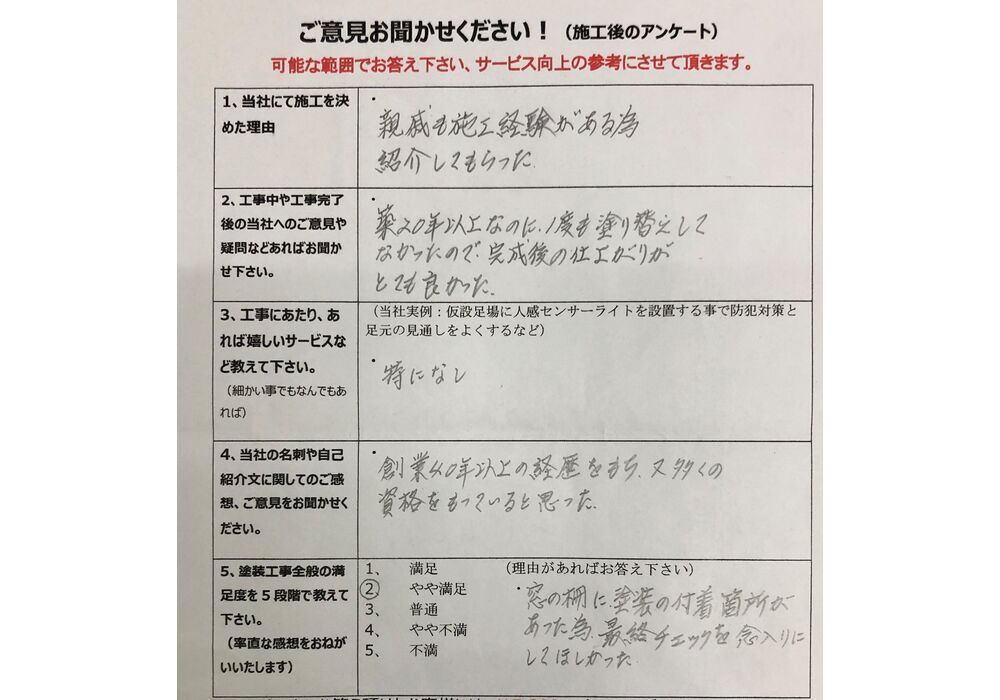 ご意見お聞かせください！（施工後のアンケート）
可能な範囲でお答え下さい、サービス向上の参考にさせて頂きます。
1、当社にて施工を決
めた理由
・
親戚も施工経験がある為
紹介してもらった.
2、工事中や工事完了
後の当社へのご意見や
疑問などあればお聞か
せ下さい。
・
築20年以上なのに、1度も塗り替えして
なかったので、完成後の仕上がりが
とても良かった.
3、工事にあたり、あ
れば嬉しいサービスな
ど教えて下さい。
（細かい事でもなんでもあ
れば）
（当社実例：仮設足場に人感センサーライトを設置する事で防犯対策と
足元の見通しをよくするなど）
・特になし
4、当社の名刺や自己
紹介文に関してのご感
想、ご意見をお聞かせく
ださい。
・創業40年以上の経歴をもち、又多くの
資格をもっていると思った.
5、塗装工事全般の満
足度を5段階で教えて
下さい。
（率直な感想をおねが
いいたします）
1、 満足 （理由があればお答え下さい）
2、 やや満足
3、 普通
4、 やや不満
5、 不満
・窓の柵に、塗装の付着箇所が
あった為、最終チェックを念入りに
してほしかった.